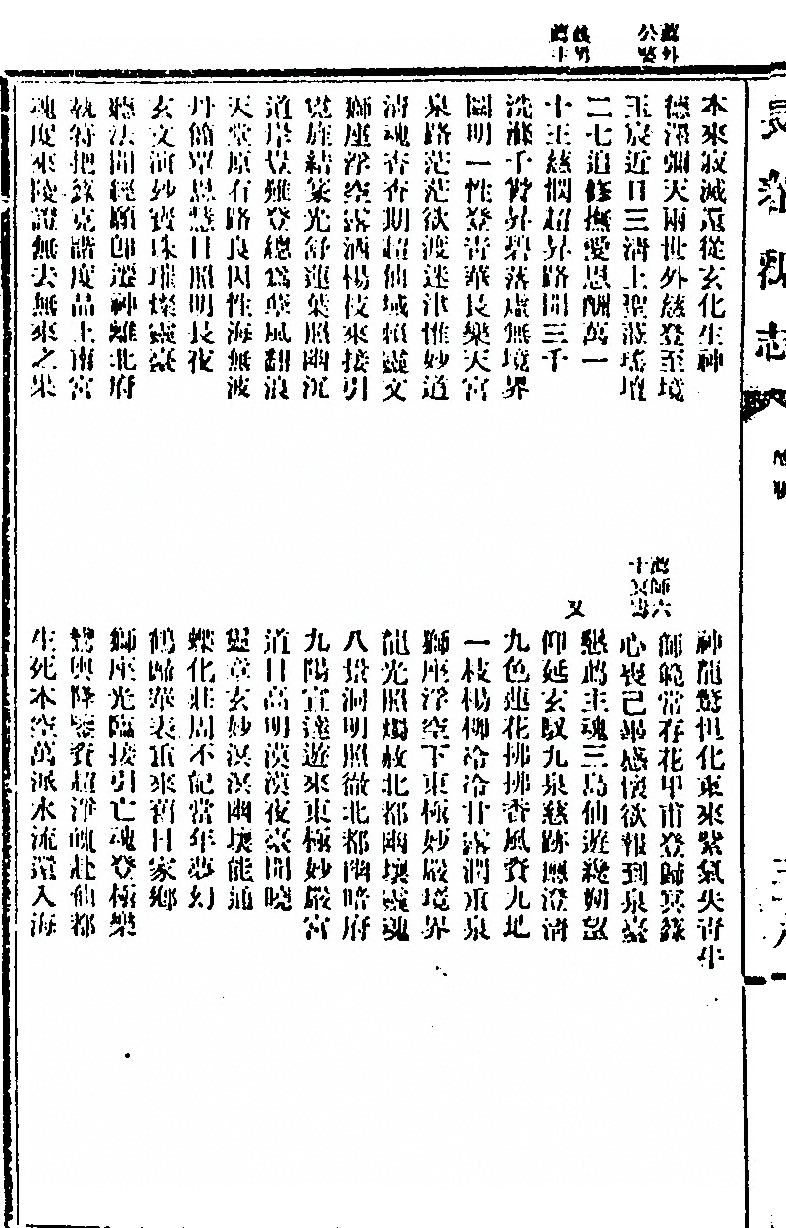 長沙縣志
薦外
公婆
岳男
薦主
本來寂滅還從玄化生神
德澤彌天兩世外慈登至境
玉宸近日三清上聖蒞瑤壇
二七追修撫愛恩酬萬一
十王慈憫超昇路開三千
洗滌千愆昇碧落虛無境界
圓明一性登青華長樂天宮
泉路茫茫欲渡迷津惟妙道
清魂杳杳期超仙域賴靈文
獅座浮空露洒楊枝來接引
霓旌結篆光舒蓮葉照幽沉
道岸豈難登總爲業風翻浪
天堂原有路良因性海無波
丹簡覃恩慧日照明長夜
玄文演妙寶珠璀燦靈臺
聽法聞經願卽遷神離北府
執符把籙克諧度品上南宮
魂度來陵證無去無來之果
薦師六
十冥壽
又
神龍驚怛化東來紫氣失青牛
師範當存花甲甫登歸冥籙
心喪已畢感懷欲報到泉臺
懇薦主魂三島仙遊幾朔望
仰延玄馭九泉慈跡應澄清
九色蓮花拂拂香風資九地
一枝楊柳冷冷甘露潤重泉
獅座浮空下東極妙嚴境界
龍光照燭赦北都幽壤靈魂
八景洞明照徹北都幽暗府
九陽宣達遊來東極妙嚴宮
道日高明漠漠夜臺開曉
靈章玄妙溟溟幽壤能通
蝶化莊周不記當年夢幻
鶴歸華表重來舊日家鄉
獅座光臨接引亡魂登極樂
鸞輿降鑒資超淨魄赴仙都
生死本空萬派水流還入海